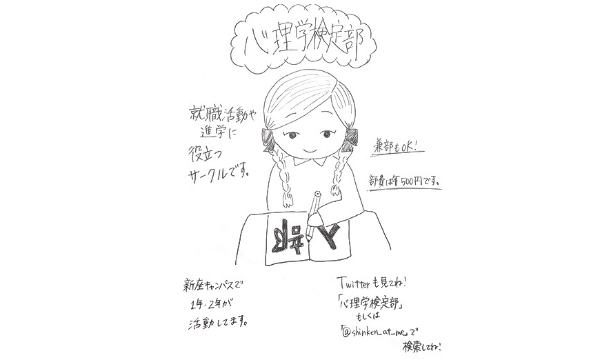 心理学検定部
就職活動や
進学に
役立つ
サークルです。
兼部もOK!
部費は年500円です。
新座キャンパスで
1年・2年が
活動してます。
Twitterも見てね!
「心理学検定部」
もしくは
「@shinken_at_me」で
検索してね!